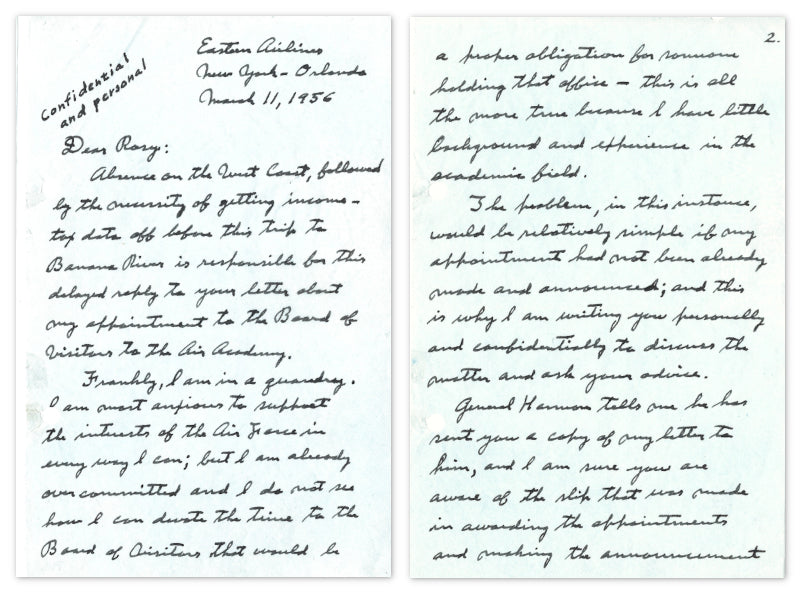 Confidential
and personal
Eastern Airlines
New York - Orlando
March 11, 1956
Dear Rosy:
Absence on the West Coast, followed
by the necessity of getting income-
tax data off before this trip to
Banana River is responsible for this
delayed reply to your letter about
my appointment to the Board of
Visitors to the Air Academy.
Frankly, I am in a quandry.
I am most anxious to support
the interests of the Air Force in
every way I can; but I am already
overcommitted and I do not see
how I can devote the time to the
Board of Visitors that would be
2.
a proper obligation for someone
holding that office — this is all
the more true because I have little
background and experience in the
academic field.
The problem, in this instance,
would be relatively simple if my
appointment had not been already
made and announced; and this
is why I am writing you personally
and confidentially to discuss the
matter and ask your advice.
General Harmon tells me he has
sent you a copy of my letter to
him, and I am sure you are
aware of the slip that was made
in awarding the appointments
and making the announcement